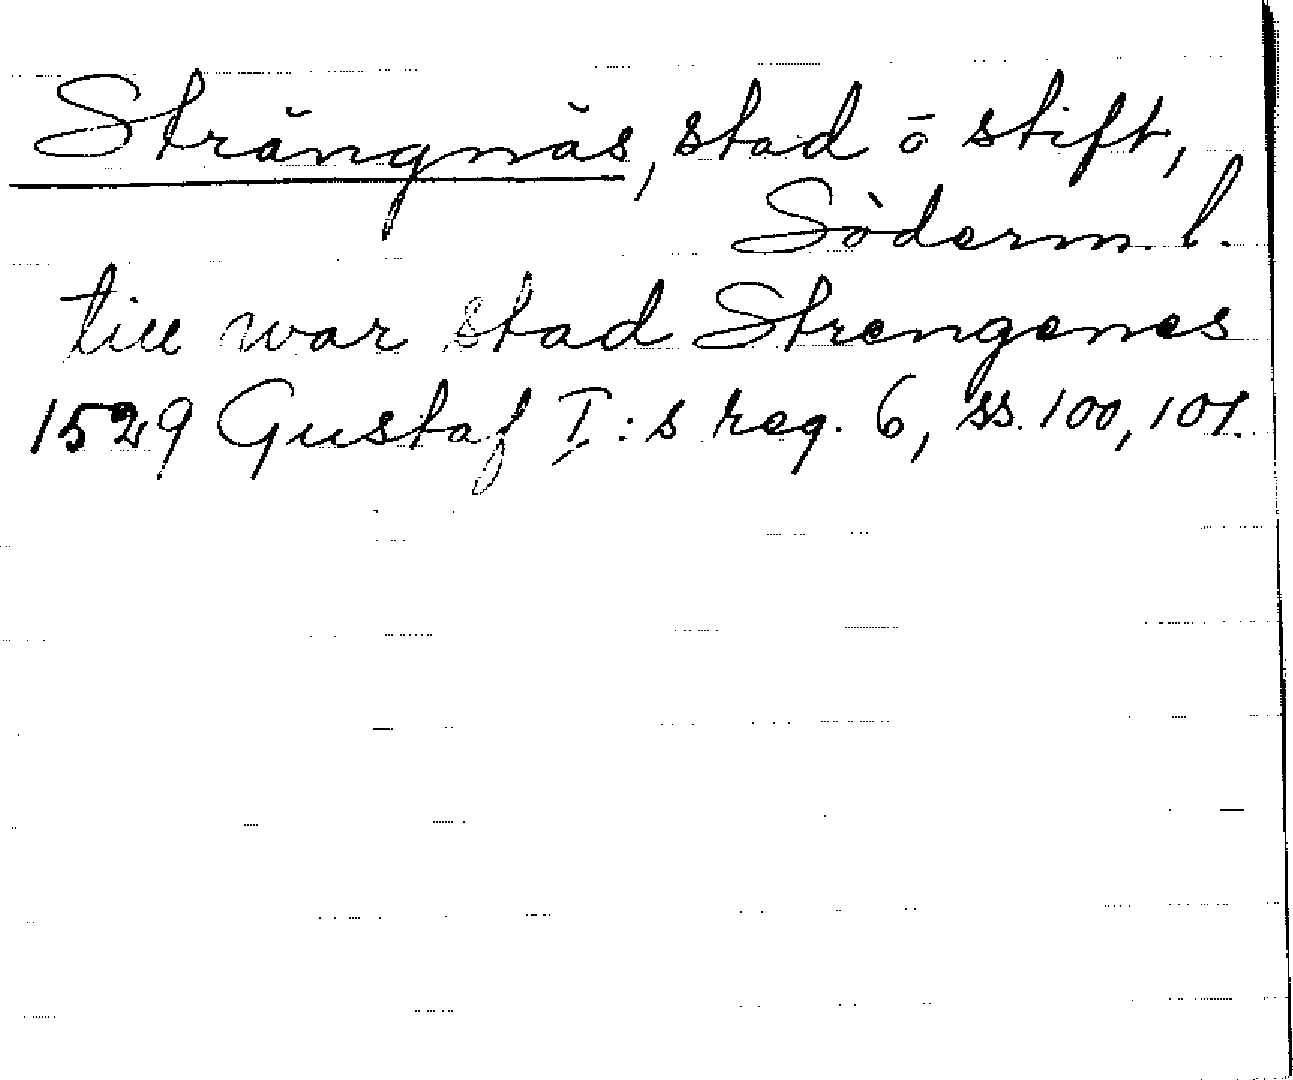 Strängnäs, stad o stift,
Söderm. l.
till war stad Strengenes
1529 Gustaf I:s reg. 6, ss. 100, 101.